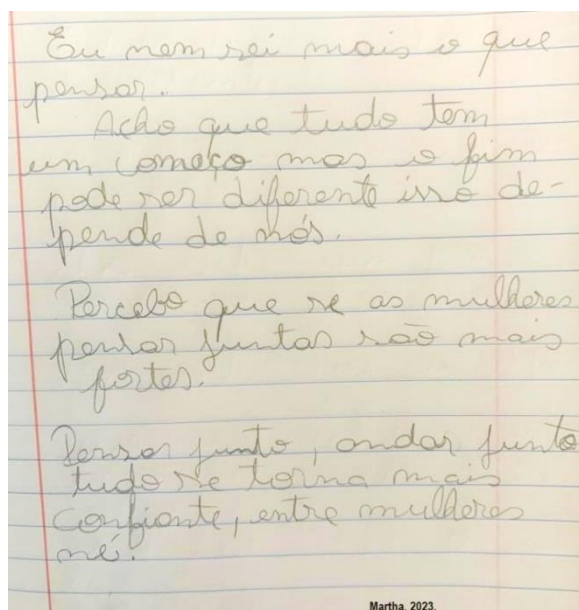 Eu nem sei mais o que
pensar.
Acho que tudo tem
um começo mas o fim
pode ser diferente isso de-
pende de nós.
Percebo que se as mulheres
pensar juntas são mais
fortes.
Pensar junto, andar junto
tudo se torna mais
confiante, entre mulheres
né!
Martha, 2023.